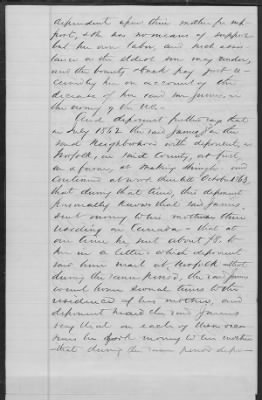 dependent upon their mother for sup-
port, & she has no means of support
but her own labor, and such assis-
tance as the eldest son may render,
and the bounty & back pay just re-
ceived by her on account of the
decease of her said son James, in
the army of the U.S.
And deponent further says that
in July 1862 the said James in the
said neighborhood with deponent, in
Norfolk, in said County, at first
on a farm, at making shingle, and
continued at work there till October 1863,
that during that time, this deponent
personally knows that said James,
sent money to his mother then
residing in Canada - that at
one time he sent about $8. to
her in a letter which deponent
saw him mail at Norfolk - that
during the same period, the said James
went home several times to the
residence of his mother, and
deponent heard the said James
say that on each of those occa-
sions he took money to his mother
- that during the same period depo-